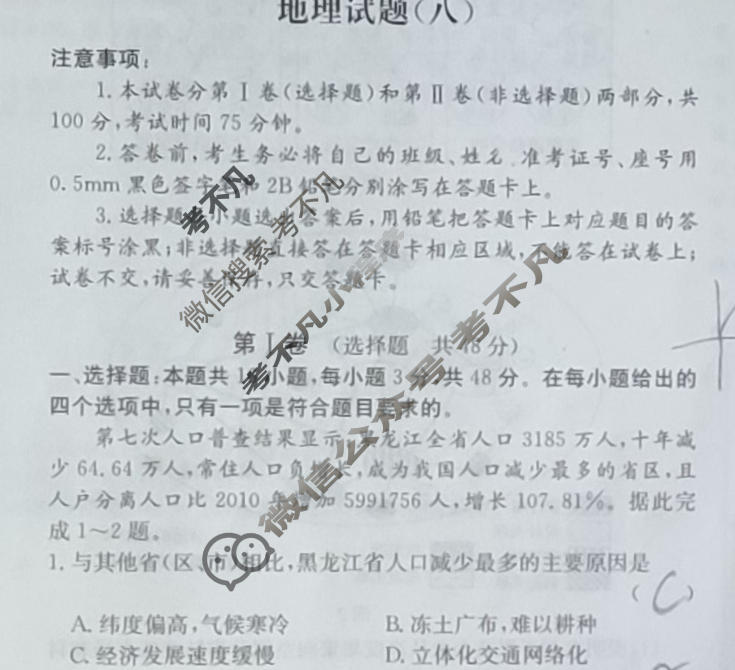 地理试题(八)
注意事项:
1. 本试卷分第Ⅰ卷(选择题)和第Ⅱ卷(非选择题)两部分,共
100分,考试时间75分钟。
2. 答卷前,考生务必将自己的班级、姓名、准考证号、座号用
0.5mm黑色签字笔和2B铅笔分别涂写在答题卡上。
3. 选择题每小题选出答案后,用铅笔把答题卡上对应题目的答
案标号涂黑;非选择题直接答在答题卡相应区域,不能答在试卷上;
试卷不交,请妥善保存,只交答题卡。
第Ⅰ卷 (选择题 共48分)
一、选择题:本题共1小题,每小题3分,共48分。在每小题给出的
四个选项中,只有一项是符合题目要求的。
第七次人口普查结果显示,黑龙江全省人口3185万人,十年减
少64.64万人,常住人口负,成为我国人口减少最多的省区,且
人户分离人口比2010年增加5991756人,增长107.81%。据此完
成1~2题。
1. 与其他省(区、市)相比,黑龙江省人口减少最多的主要原因是
(C)
A. 纬度偏高,气候寒冷 B. 冻土广布,难以耕种
C. 经济发展速度缓慢 D. 立体化交通网络化
考不凡
微信搜索 考不凡小程序
微信公众号 考不凡